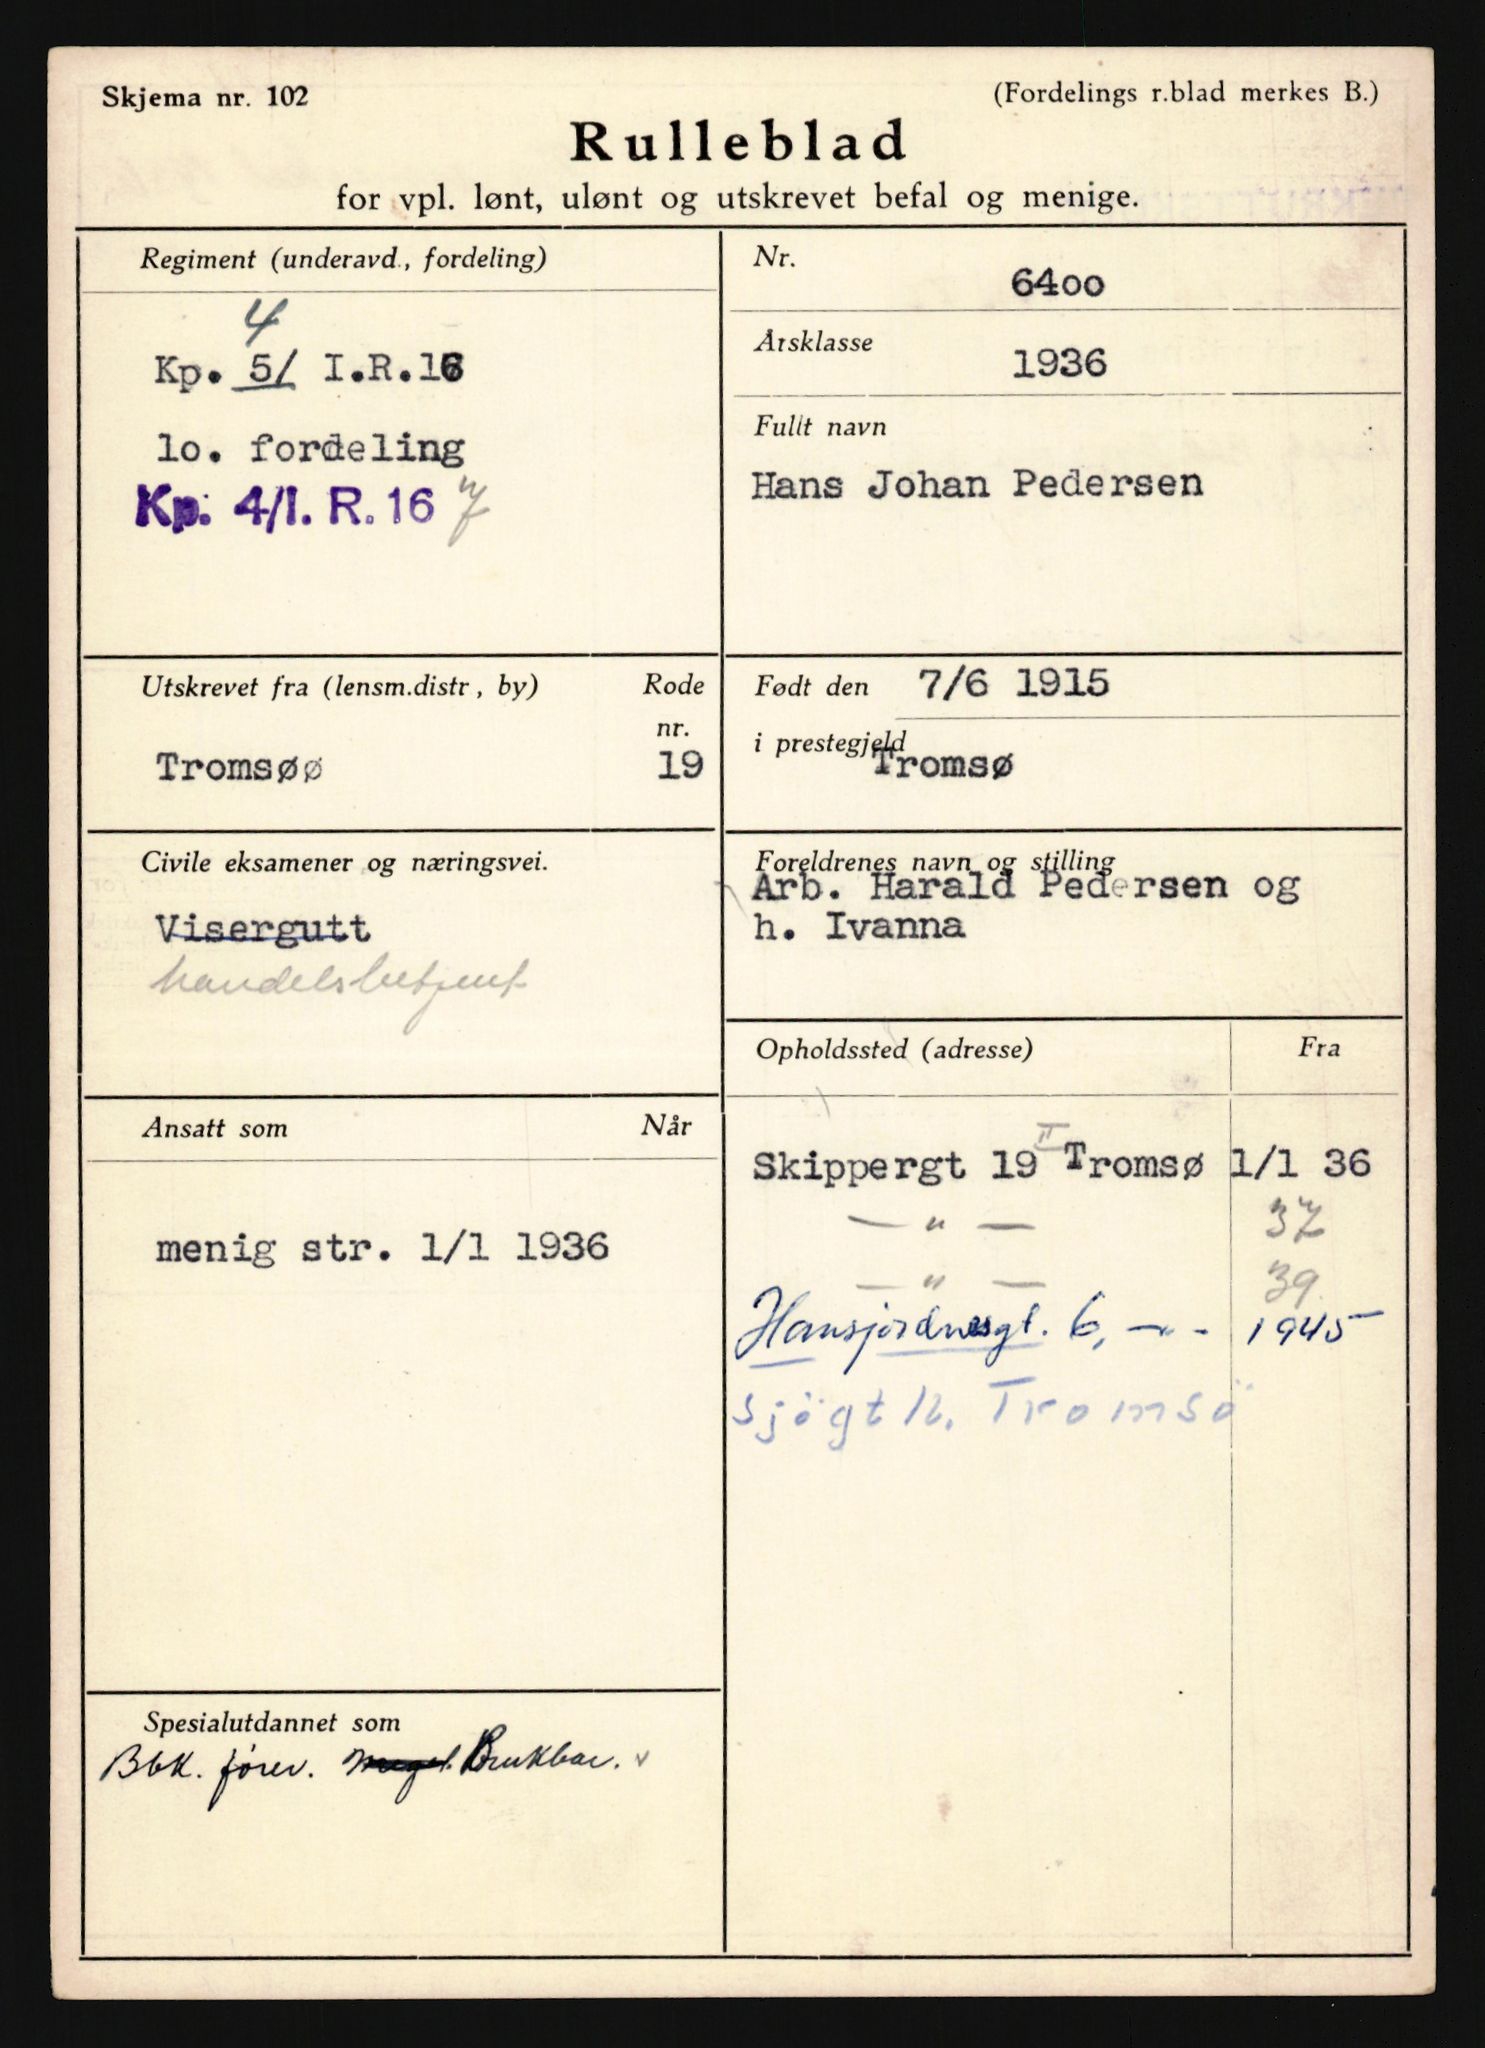 Skjema nr. 102
(Fordelings r.blad merkes B.)
Rulleblad
for vpl. lønt, ulønt og utskrevet befal og menige.
Regiment (underavd., fordeling)
4
Kp. 5/ I.R.16
lo. fordeling
Kp. 4/I. R. 16
Nr.
6400
Årsklasse
1936
Fullt navn
Hans Johan Pedersen
Utskrevet fra (lensm.distr, by)
Rode
nr.
Tromsøø
19
Født den 7/6 1915
i prestegjeld
Tromsø
Civile eksamener og næringsvei.
Visergutt
handelsbetjent
Foreldrenes navn og stilling
Arb. Harald Pedersen og
h. Ivanna
Ansatt som
Når
menig str. 1/1 1936
Opholdssted (adresse)
Fra
II
Skippergt 19 Tromsø 1/1 36
— " — 37
— " — 39.
Hansjordnesgt. 6, — " - 1945
Sjögt 12. Tromsö
Spesialutdannet som
Bbk. fører. Brukbar.